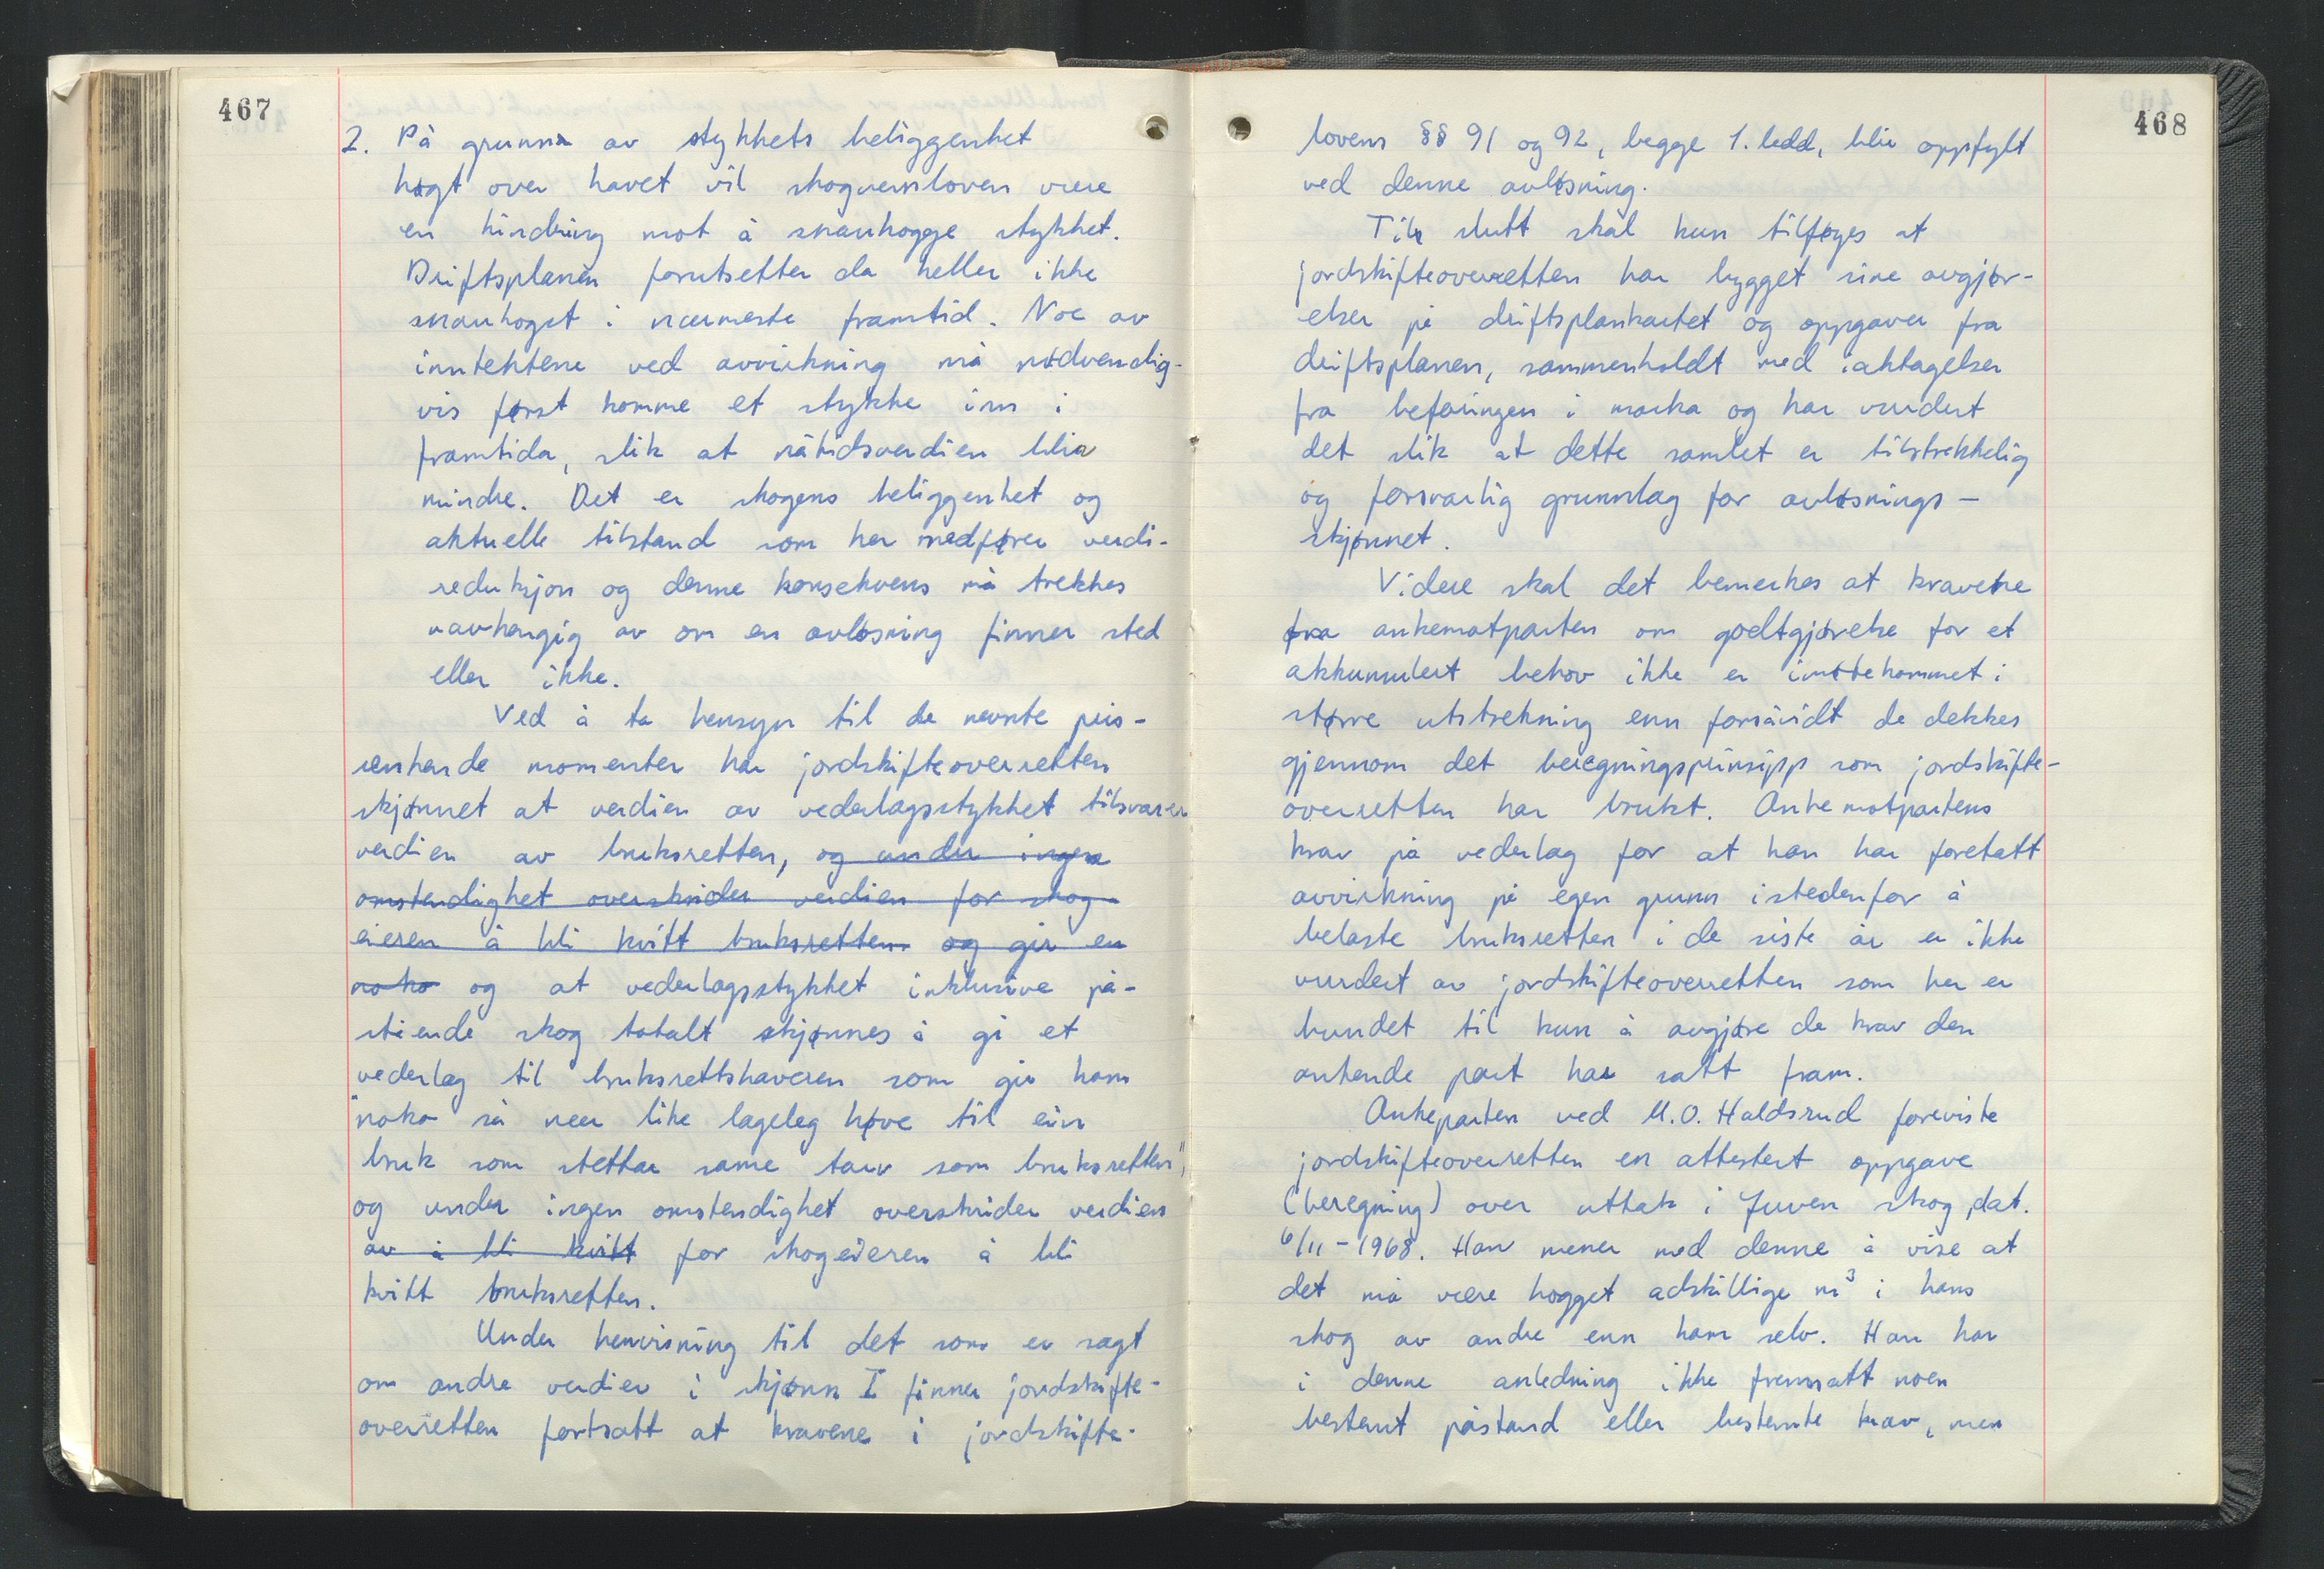 467
2. På grunn av stykkets beliggenhet
høgt over havet vil skogvernloven være
en hindring mot å snauhogge stykket.
Driftsplanen forutsetter da heller ikke
snauhogst i nærmeste framtid. Noe av
inntektene ved avvirkning må nødvendig-
vis først komme et stykke inn i
framtida, slik at nåtidsverdien blir
mindre. Det er skogens beliggenhet og
aktuelle tilstand som her medfører verdi-
reduksjon og denne konsekvens må trekkes
uavhengig av om en avløsning finner sted
eller ikke.
Ved å ta hensyn til de nevnte pris-
senkende momenter har jordskifteoverretten
skjønnet at verdien av vederlagsstykket tilsvarer
verdien av bruksretten, og under ingen
omstendighet overskrider verdien for skog-
eieren å bli kvitt bruksretten og gir en
noko og at vederlagsstykket inklusive på-
stående skog totalt skjønnes å gi et
vederlag til bruksrettshaveren som gir ham
"noko så nær like lageleg høve til ein
bruk som stettar same tarv som bruksretten",
og under ingen omstendighet overskrider verdien
av å bli kvitt for skogeieren å bli
kvitt bruksretten.
Under henvisning til det som er sagt
om andre verdier i skjønn I finner jordskifte-
overretten fortsatt at kravene i jordskifte-
468
lovens §§ 91 og 92, begge 1. ledd, blir oppfylt
ved denne avløsning.
Til slutt skal kun tilføyes at
jordskifteoverretten har bygget sine avgjør-
elser på driftsplankartet og oppgaver fra
driftsplanen, sammenholdt med iakttagelser
fra befaringen i marka og har vurdert
det slik at dette samlet er tilstrekkelig
og forsvarlig grunnlag for avløsnings-
skjønnet.
Videre skal det bemerkes at kravene
fra ankemotparten om godtgjørelse for et
akkumulert behov ikke er imøtekommet i
større utstrekning enn forsåvidt de dekkes
gjennom det beregningsprinsipp som jordskifte-
overretten har brukt. Ankemotpartens
krav på vederlag for at han har foretatt
avvirkning på egen grunn istedenfor å
belaste bruksretten i de siste år er ikke
vurdert av jordskifteoverretten som her er
bundet til kun å avgjøre de krav den
ankende part har satt fram.
Ankeparten ved M.O. Haldsrud foreviste
jordskifteoverretten en attestert oppgave
(beregning) over uttak i Juven skog, dat.
6/11-1968. Han mener med denne å vise at
det må være hogget adskillige m³ i hans
skog av andre enn ham selv. Han har
i denne anledning ikke fremsatt noen
bestemt påstand eller bestemte krav, men